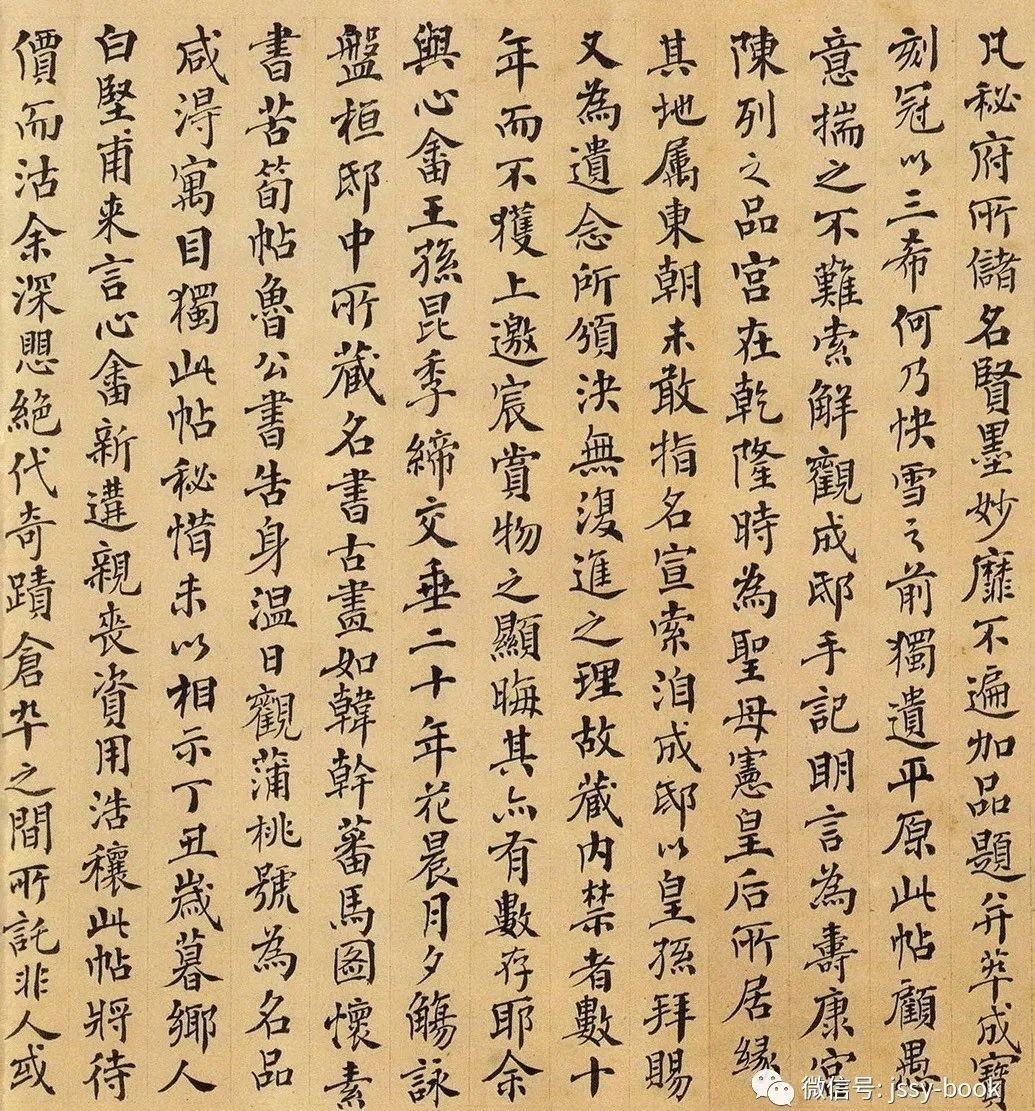 凡秘府所儲名賢墨妙靡不遍加品題并萃成寶
刻冠以三希何乃快雪之前獨遺平原此帖顧愚
意揣之不難索解觀成邸手記明言為壽康宮
陳列之品宮在乾隆時為聖母憲皇后所居緣
其地屬東朝未敢指名宣索洎成邸以皇孫拜賜
又為遺念所頒決無復進之理故藏內禁者數十
年而不獲上邀宸賞物之顯晦其亦有數存耶余
與心畬王孫昆季締交垂二十年花晨月夕觴詠
盤桓邸中所藏名書古畫如韓幹蕃馬圖懷素
書苦筍帖魯公書告身溫日觀蒲桃號為名品
咸淂寓目獨此帖秘惜未以相示丁丑歲暮鄉人
白堅甫来言心畬新遘親喪資用浩穰此帖將待
價而沽余深愳絕代奇蹟倉卒之間所託非人或
微信号: jssy-book